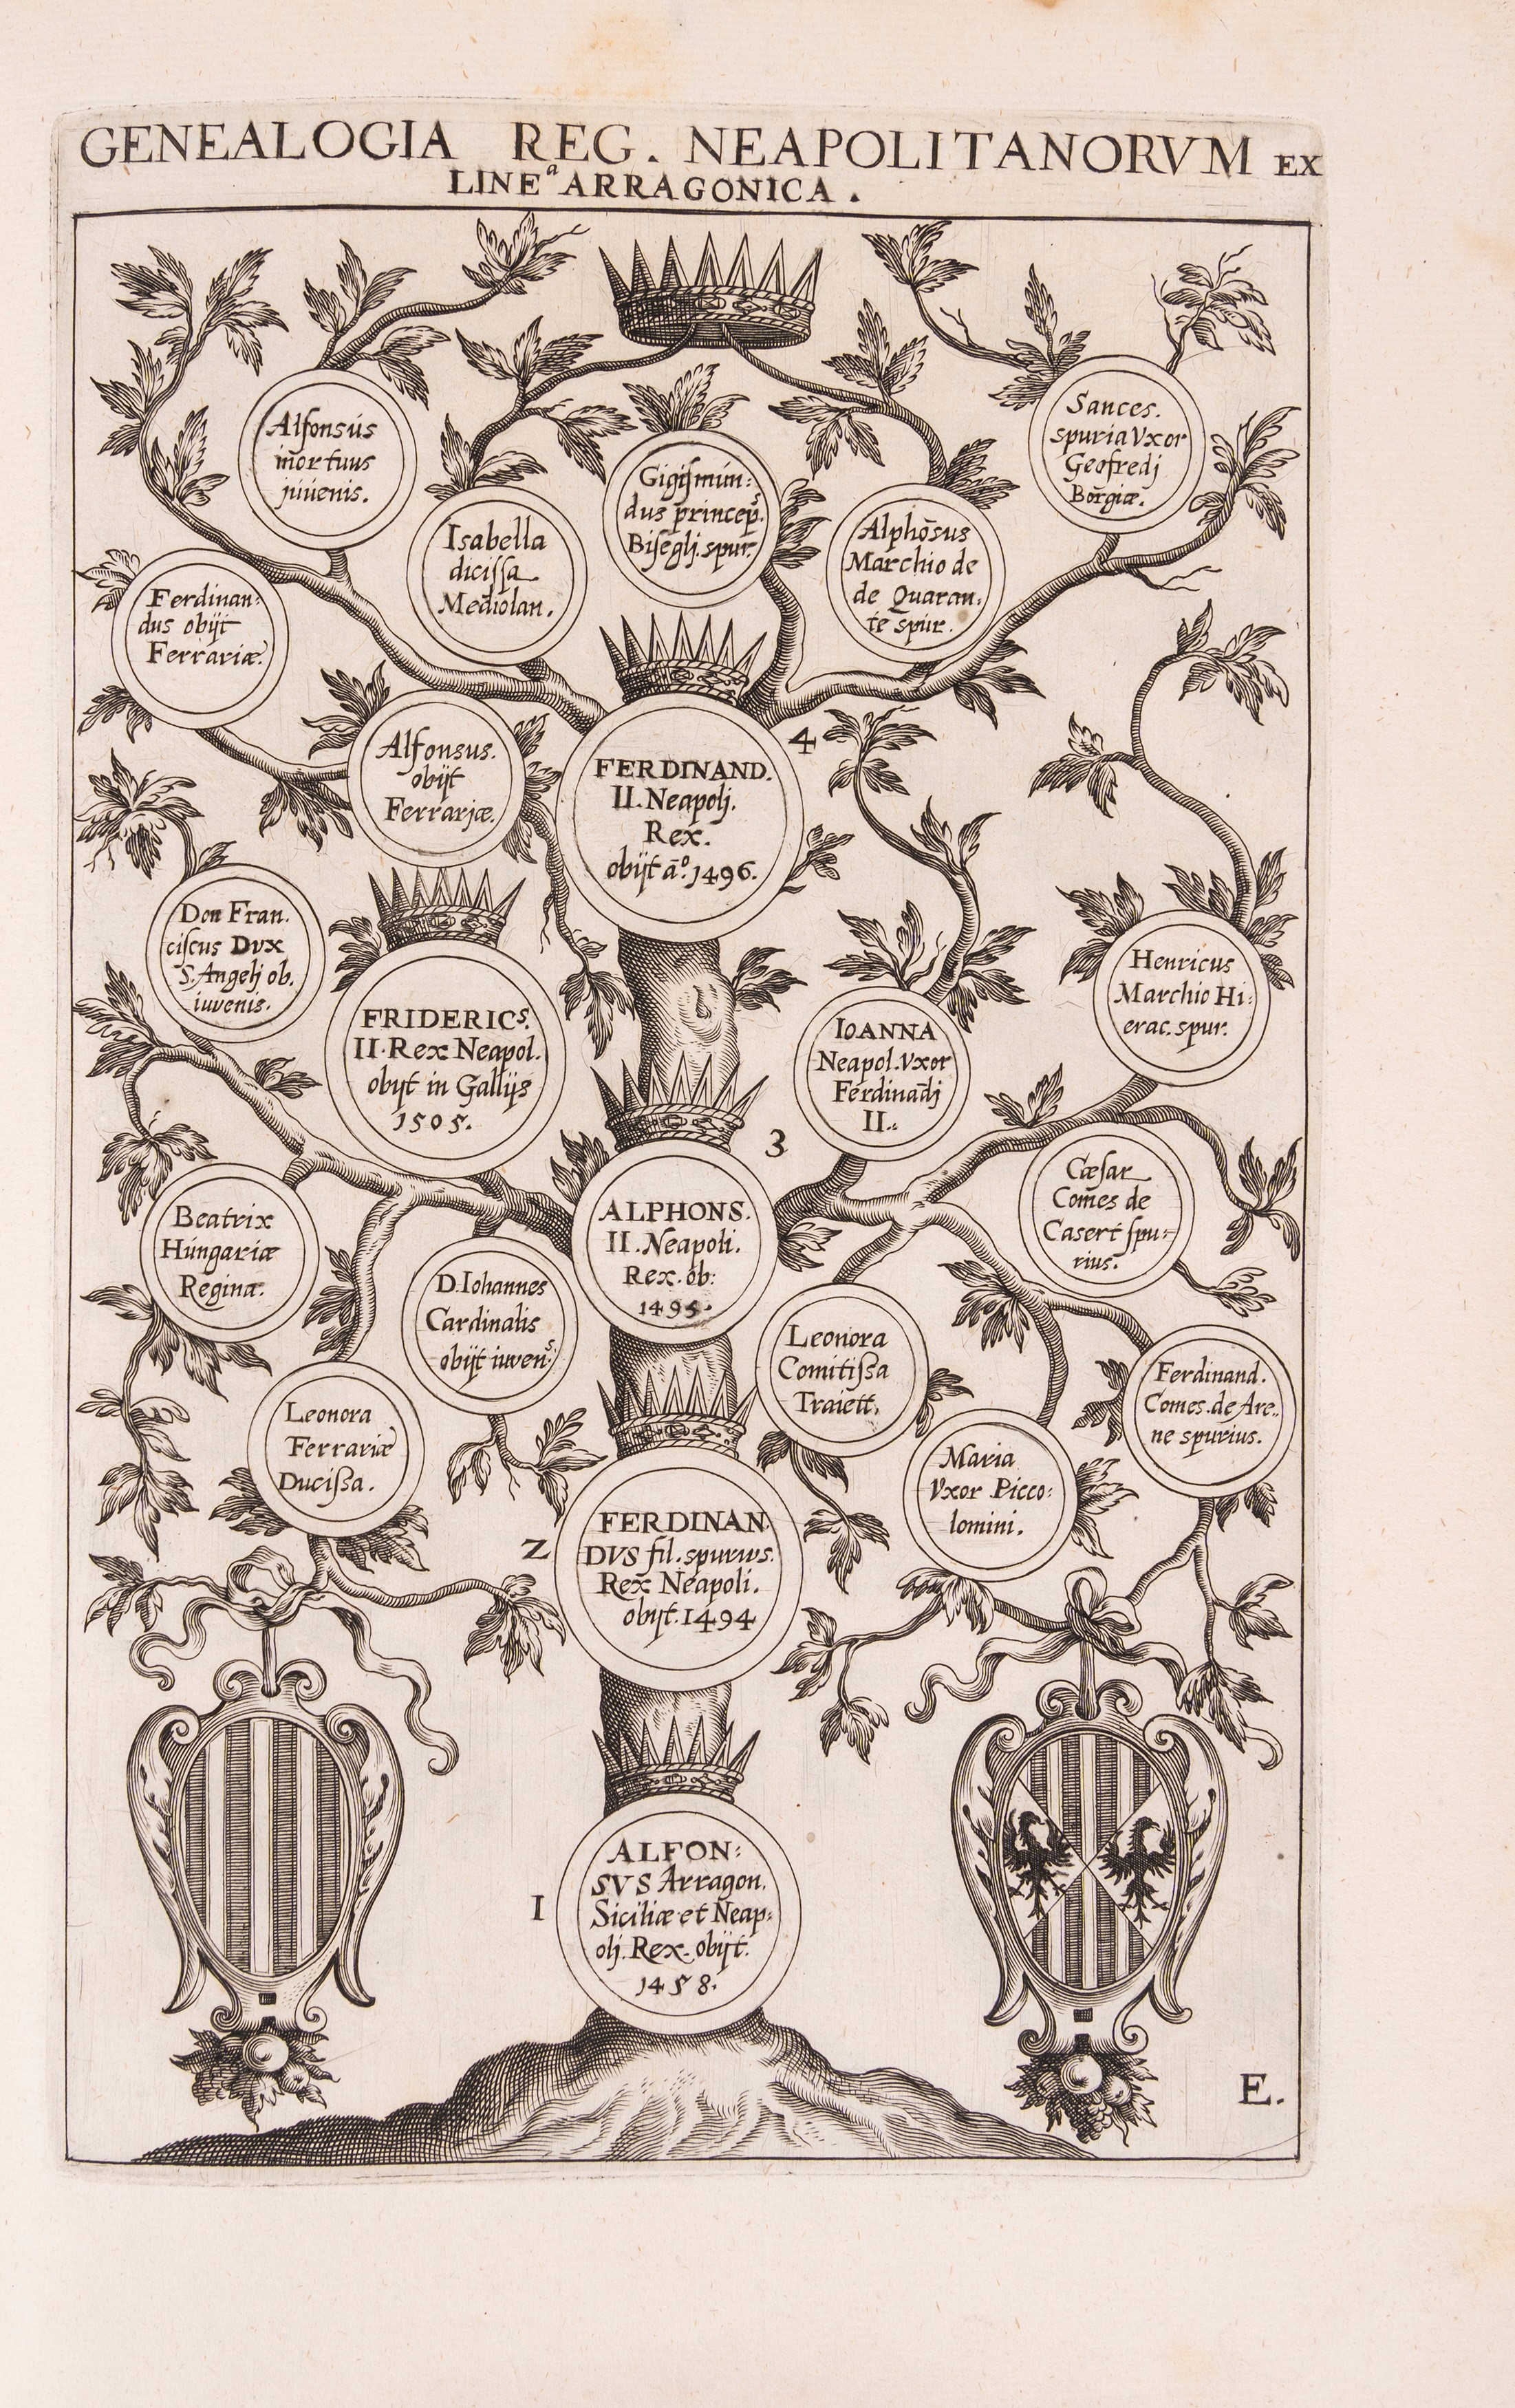 GENEALOGIA REG. NEAPOLITANORVM EX
LINEª ARRAGONICA.
Alfonsus
mortuus
juvenis.
Isabella
dicissa
Mediolan.
Gigismun:
dus princeps.
Bisegli. spur.
Alphōsus
Marchio de
de Quaran:
te spur.
Sances.
spuria Vxor
Geofredj
Borgiæ.
Ferdinan:
dus obijt
Ferrariæ.
Alfonsus.
obijt
Ferrariæ.
FERDINAND.
II. Neapolj.
Rex.
obijt āº. 1496.
4
Don Fran.
ciscus Dvx
S. Angelj ob.
iuvenis.
FRIDERICˢ.
II. Rex Neapol.
obijt in Gallijs
1505.
IOANNA
Neapol. Vxor
Ferdinādj
II.
Henricus
Marchio Hi:
erac. spur.
3
Beatrix
Hungariæ
Regina.
D. Iohannes
Cardinalis
obijt iuvenˢ.
ALPHONS.
II. Neapoli.
Rex. ob:
1495.
Cæsar
Comes de
Casert spu:
rius.
Leonora
Ferrariæ
Ducissa.
Leonora
Comitissa
Traiett.
Maria
Vxor Picco:
lomini.
Ferdinand.
Comes. de Are:
ne spurius.
2
FERDINAN
DVS fil. spurius.
Rex Neapoli.
obijt. 1494
1
ALFON:
SVS Arragon.
Siciliæ et Neap:
olj. Rex. obijt.
1458.
E.